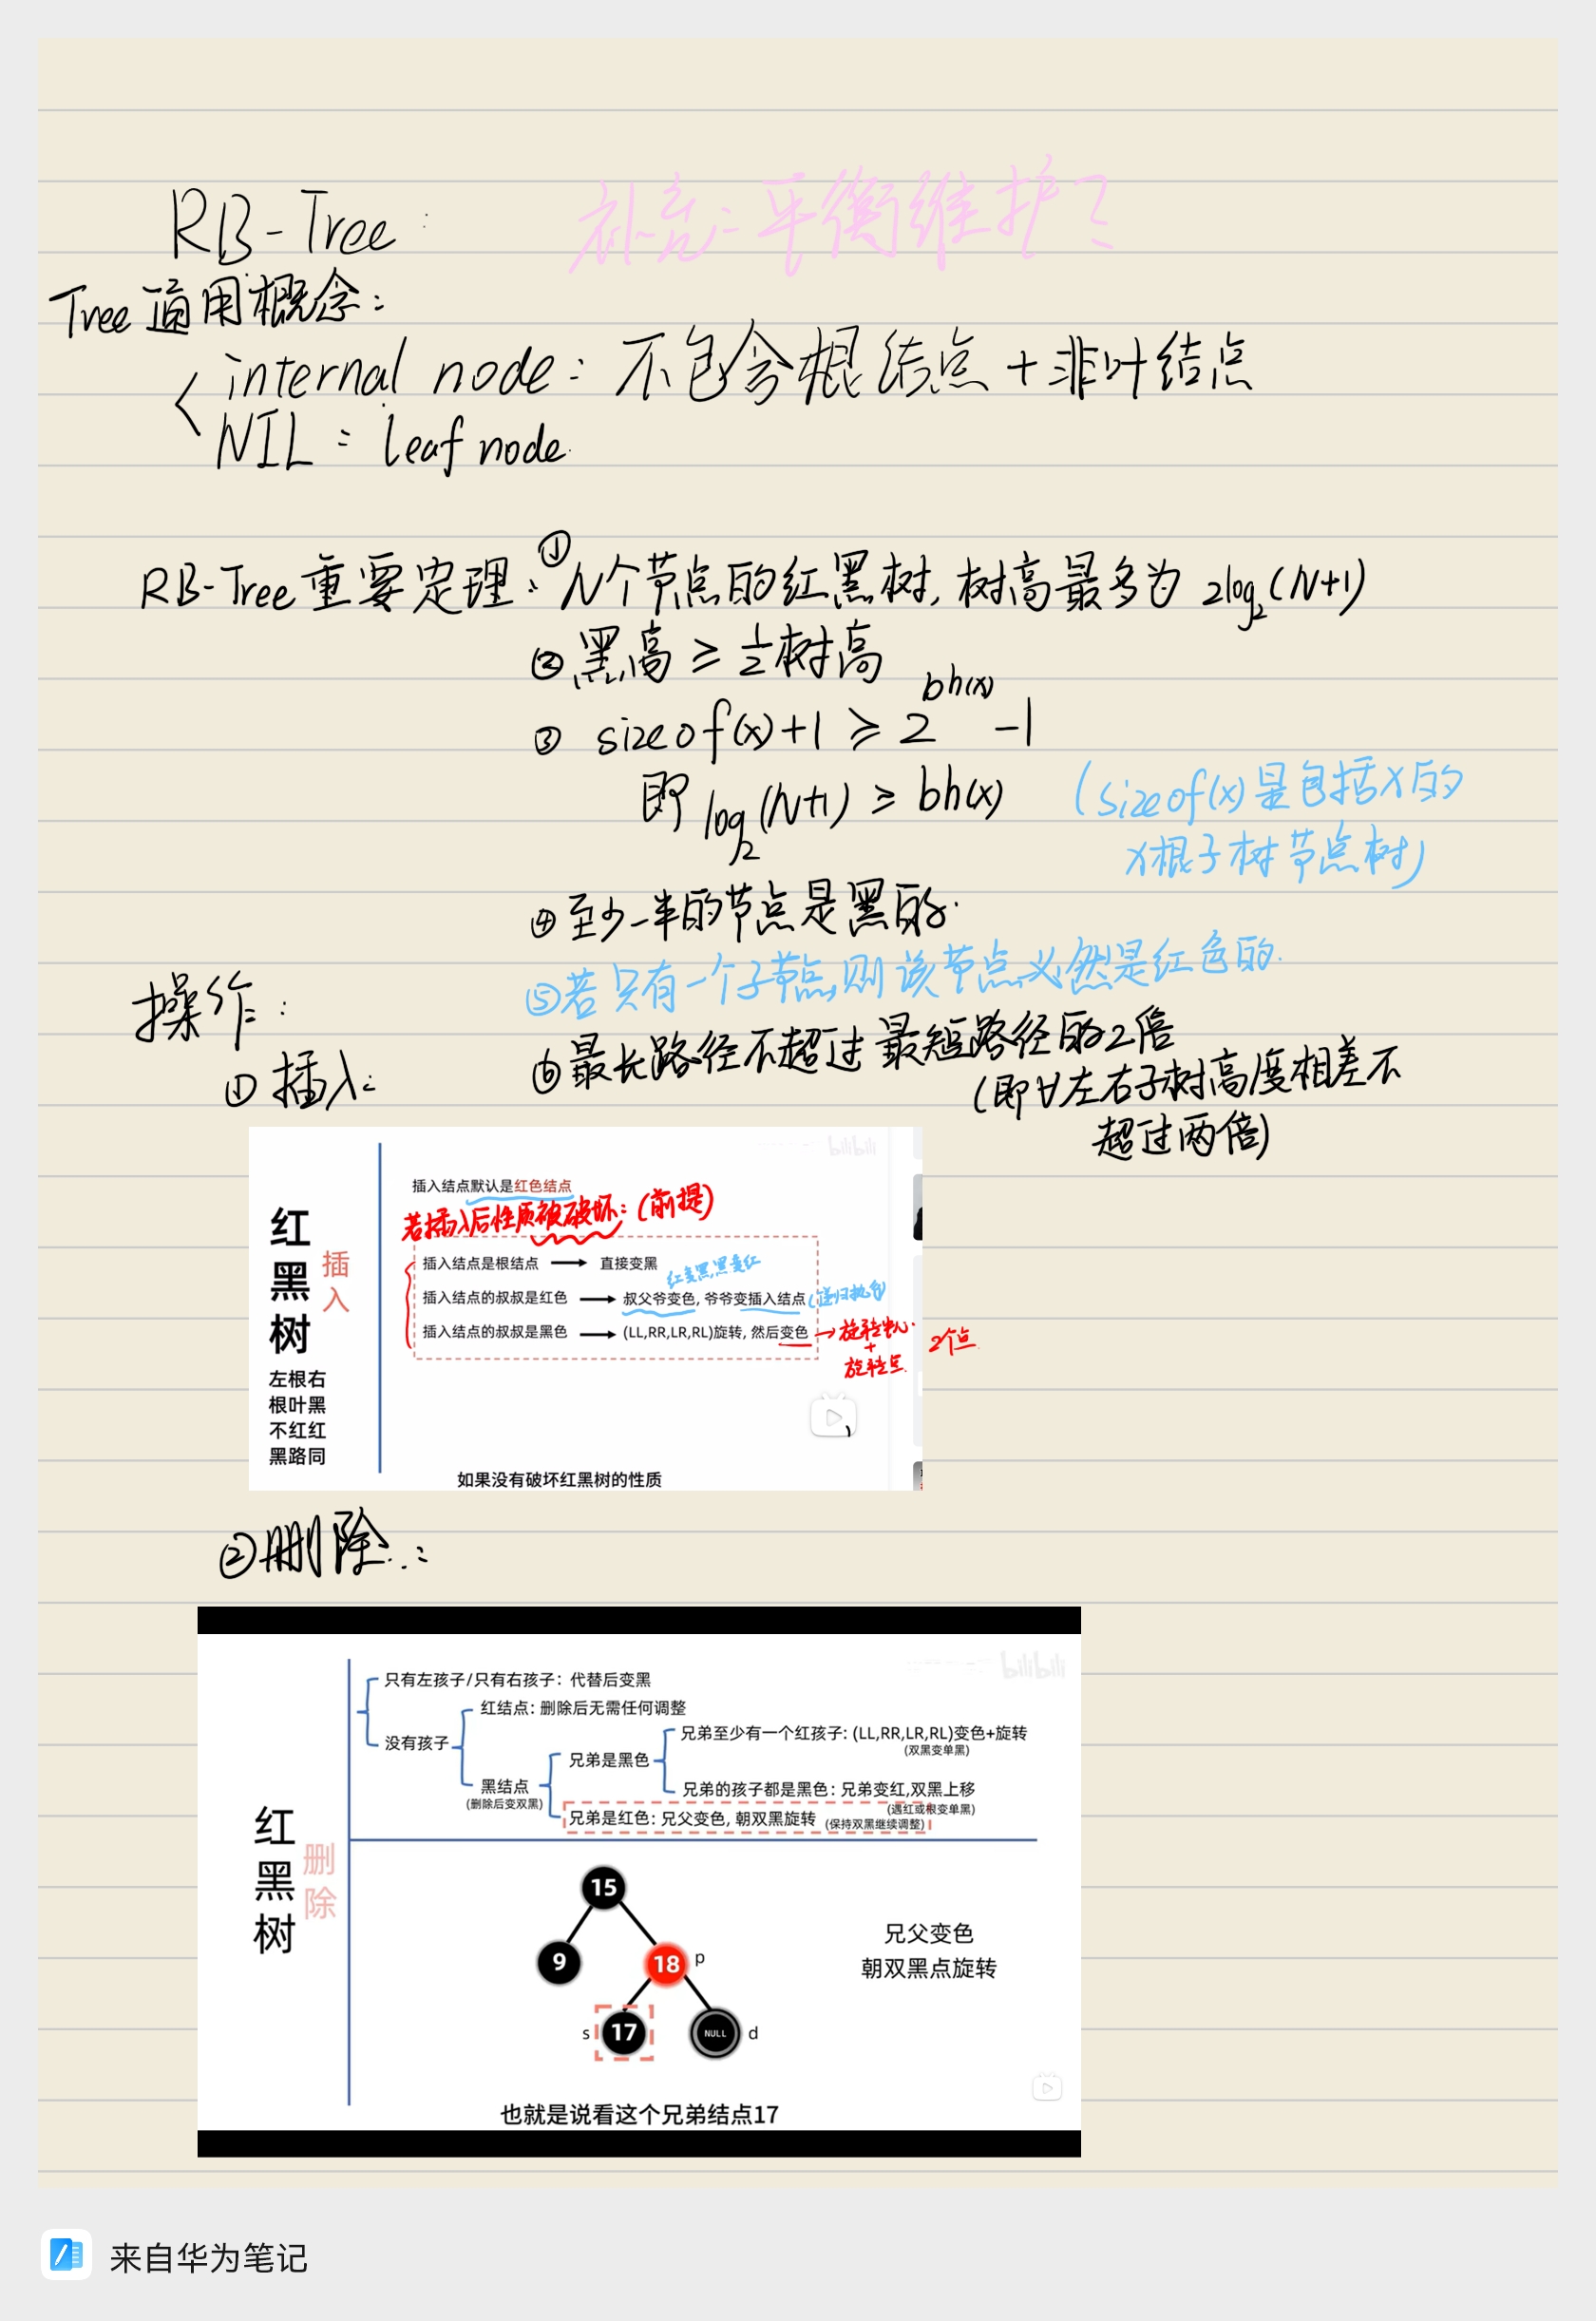 RB-Tree:
补充:平衡维护?
Tree 通用概念:
internal node: 不包含根结点+非叶结点
NIL = leaf node.
RB-Tree重要定理: ① N个节点的红黑树, 树高最多为 2log₂(N+1)
② 黑高 ≥ 1/2 树高
③ sizeof(x)+1 ≥ 2^bh(x) -1
即 log₂(N+1) ≥ bh(x)
(sizeof(x)是包括x的
x根子树节点树)
④ 至少一半的节点是黑的.
⑤若只有一个子节点,则该节点必然是红色的.
⑥ 最长路径不超过最短路径的2倍
(即∀左右子树高度相差不
超过两倍)
操作:
① 插入:
bilibili
红黑树
插入
左根右
根叶黑
不红红
黑路同
插入结点默认是红色结点
若插入后性质被破坏:(前提)
插入结点是根结点 → 直接变黑
红变黑,黑变红
插入结点的叔叔是红色 → 叔父爷变色, 爷爷变插入结点
插入结点的叔叔是黑色 → (LL,RR,LR,RL)旋转, 然后变色
→旋转中心
+
旋转点
2个点
如果没有破坏红黑树的性质
②删除:
bilibili
红黑树
删除
只有左孩子/只有右孩子: 代替后变黑
没有孩子
红结点: 删除后无需任何调整
黑结点
(删除后变双黑)
兄弟是黑色
兄弟至少有一个红孩子: (LL,RR,LR,RL)变色+旋转
(双黑变单黑)
兄弟的孩子都是黑色: 兄弟变红,双黑上移
(遇红或根变单黑)
兄弟是红色: 兄父变色, 朝双黑旋转 (保持双黑继续调整)
15
9
18 p
s 17
NULL d
兄父变色
朝双黑点旋转
也就是说看这个兄弟结点17
来自华为笔记